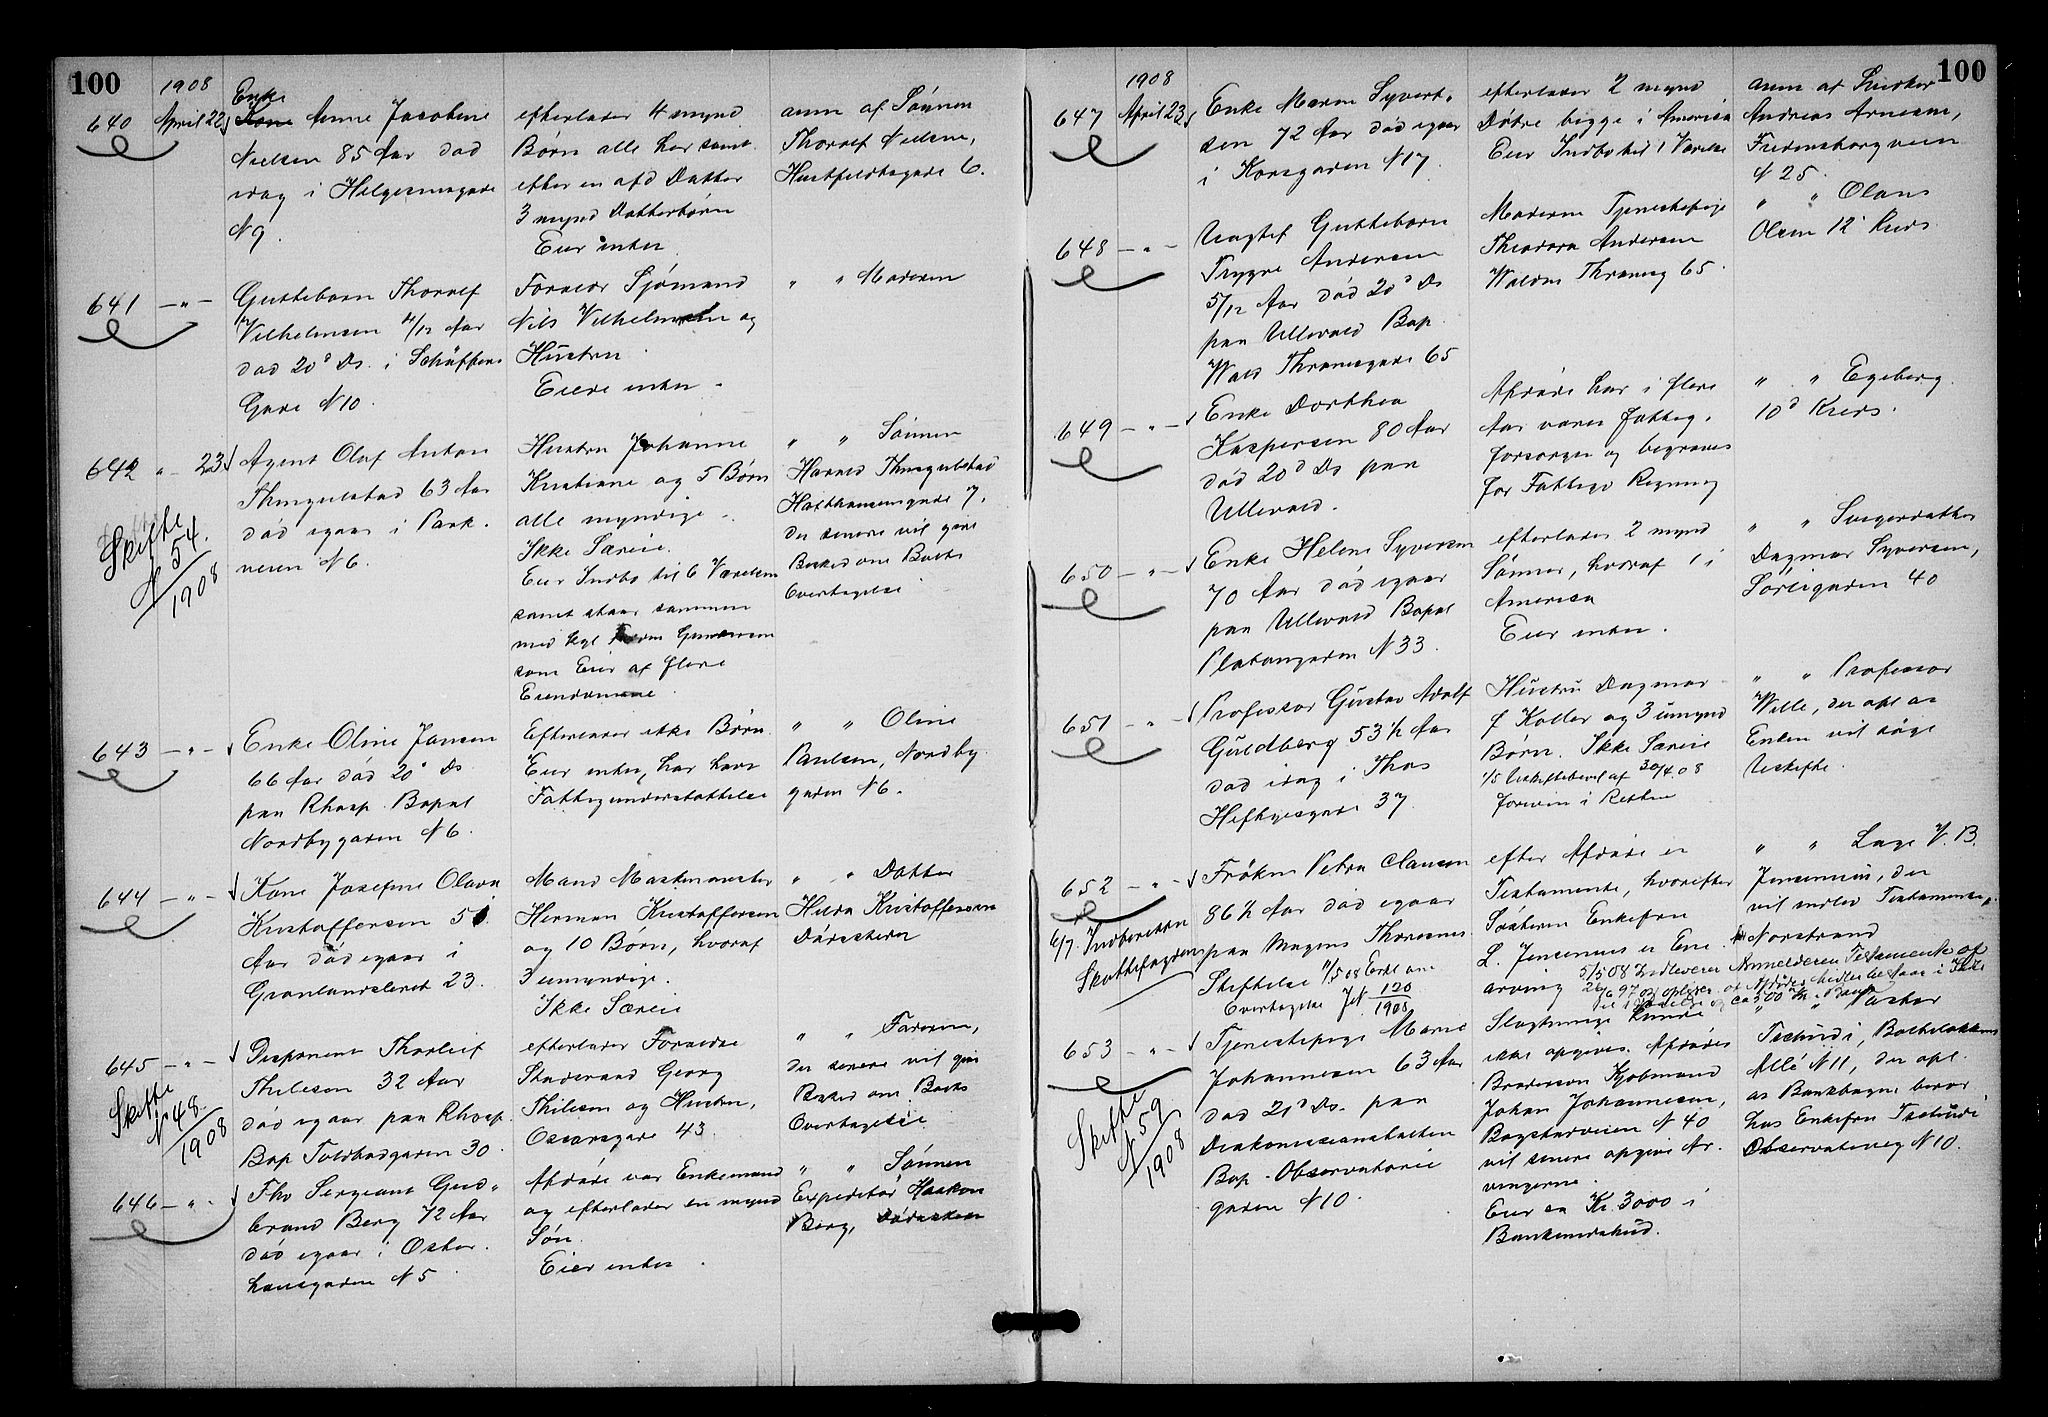 100
1908
640
April 22
Enke
Kone Anne Jacobine
Nielsen 85 Aar død
idag i Helgesensgade
N 9.
efterlader 4 mynd
Børn alle her samt
efter en afd Datter
3 mynd Datterbørn
Eier intet
anm af Sønnen
Thoralf Nielsen,
Huitfeldtsgade 6.
641 — " —
Guttebarn Thoralf
Vilhelmsen 4/12 Aar
død 20d Ds. i Schüssens
Gade N 10.
Foreldr Sjømand
Nils Vilhelmsen og
Hustru.
Eier intet.
" " Moderen
642 " — 23
Agent Olaf Anton
Thingulstad 63 Aar
død igaar i Park.
veien N 6.
Skifte
N 54.
1908
Hustru Johanne
Kristiane og 5 Børn
alle myndige.
Ikke Særeie.
Eier Indbo til 6 Værelser
samt staar sammen
med
som Eier af flere
Eiendomme.
" " Sønnen
Harald Thingulstad
Holthausensgade 7,
der senere vil give
Besked om Boets
Overtagelse
643 — " —
Enke Oline Jansen
66 Aar død 20d Ds
paa Rhosp. Bopæl
Nordbygaden N 6.
Efterlader ikke Børn
Eier intet, har havt
Fattigunderstøttelse
" " Oline
Paulsen, Nordby
gaden N 6.
644 — " —
Kone Josefine Olava
Kristoffersen 51
Aar død igaar i
Grønlandsleret 23.
Mand Maskinmester
Herman Kristoffersen
og 10 Børn, hvoraf
3 umyndige.
Ikke Særeie
" " Datter
Hilda Kristoffersen
Dødsstedet
645 — " —
Disponent Thorleif
Thilesen 32 Aar
død igaar paa Rhosp.
Bop Toldbodgaden 30
Skifte
N 48.
1908
efterlader Forældre
Stadsraad Georg
Thilesen og Hustru,
Oscarsgade 43.
" " Faderen,
der senere vil give
Besked om Boets
Overtagelse
646 — " —
Fhv Sergeant Gud-
brand Berg 72 Aar
død igaar i Oster-
hausgaden N 5
Afdøde var Enkemand
og efterlader en mynd
Søn.
Eier intet.
" " Sønnen
Expeditør Haakon
Berg, Dødsstedet
100
1908
647
April 23
Enke Maren Syvert-
sen 72 Aar død igaar
i Korsgaden N 17.
efterlader 2 mynd
Døtre begge i Amerika
Eier Indbo til 1 Værelse
anm af Snedker
Andreas Arnesen,
Fredensborgveien
N 25.
648 — " —
Uægtef Guttebarn
Trygve Andersen
5/12 Aar død 20d Ds
paa Ullevaal Bop.
Wald Thranesgade 65
Moderen Tjenestepige
Theodora Andersen
Waldm Thranesg 65.
" " Olaus
Olsen 12 Kreds
649 — " —
Enke Dorthea
Kaspersen 80 Aar
død 20d Ds paa
Ullevaal.
Afdøde har i flere
Aar været fattig-
forsørget og begraves
for Fattigv Regning
" " Egeberg.
10d Kreds.
650 — " —
Enke Helene Syversen
70 Aar død igaar
paa Ullevaal Bopæl
Platougaden N 33.
efterlader 2 mynd
Sønner, hvoraf 1 i
America
Eier intet.
" " Svigerdatter
Dagmar Syversen,
Sorligaden 40
651 — " —
Professor Gustav Adolf
Guldberg 53 1/2 Aar
død idag i Thos
Heftyesgade 37
Hustru Dagmar
f Koller og 3 umynd
Børn. Ikke Særeie
1/5 Uskiftebevil af 30/4 08
forevist i Retten
" " Professor
Wille, der opl at
Enken vil søge
Uskifte.
652 — " —
Frøken Petra Clausen
86 1/2 Aar død igaar
paa Magens Thoresens
Stiftelse 11/5 08 Erkl om
Overtagelse JN 120/1908
6/7. Indberetn
Skattefogden
efter Afdøde er
Testamente, hvorefter
Søsteren Enkefru
L. Jensenius er Ene-
arving
" " Lage V. B.
Jensenius, der
vil indlev Testamentet,
Norstrand
5/5 08 Indleverer Anmelderen Testamente af
26/6 97 og oplyser at Afdødes Midler bestaar i Indbo
til 1 Værelse og ca 300 Kr i Bank
653 — " —
Tjenestepige Marie
Johannesen 63 Aar
død 21d Ds. paa
Diakonisseanstalten
Bop. Observatorie
gaden N 10.
Skifte
N 59
1908
Slægtninge kunde
ikke opgives. Afdødes
Brodersøn Kjøbmand
Johan Johannesen,
Bogstadveien N 40
vil senere opgive Ar-
vingerne.
Eier ca Kr. 3000 i
Bankindskud.
" " Pastor
Tschudi, Bolteløkkens
Allé N 11, der opl.
at Bankbogen beror
hos Enkefru Tschudi
Observatorieg N 10.